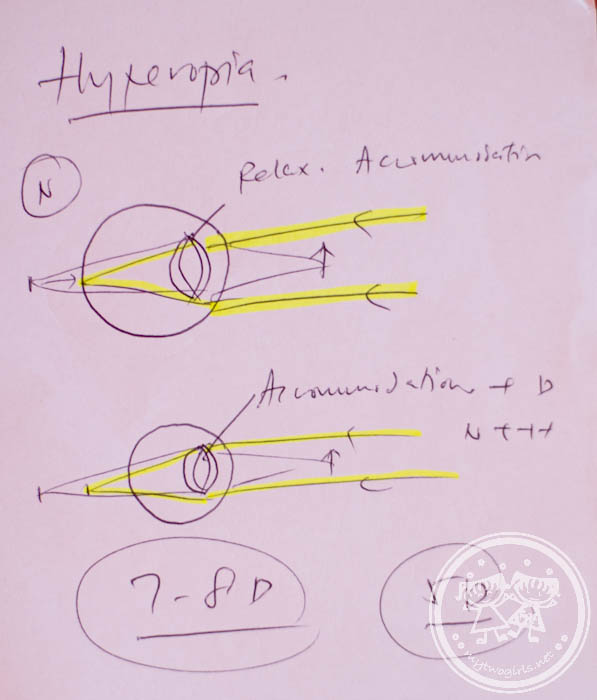 Hyperopia.
N
Relax. Accommodation
Accommodation + D
N +++
7-8 D
mytwogirls.net